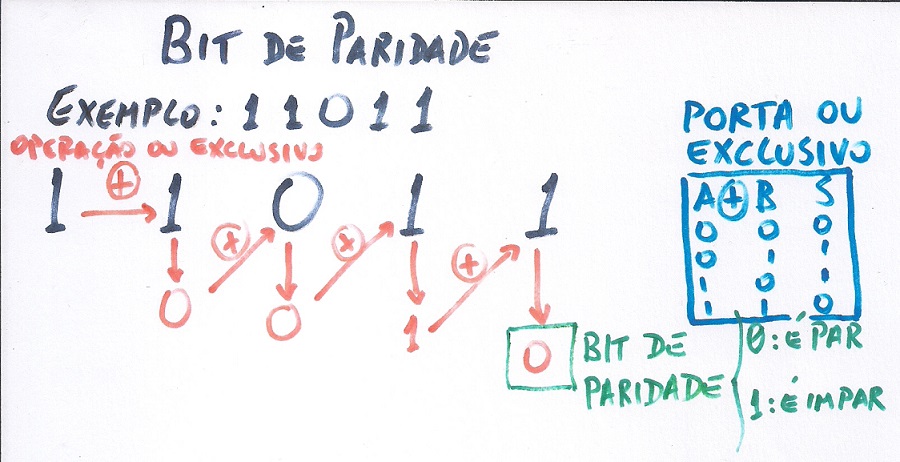 BIT DE PARIDADE
EXEMPLO: 1 1 0 1 1
OPERAÇÃO OU EXCLUSIVO
1 ⊕ 1 ⊕ 0 ⊕ 1 ⊕ 1
0 0 1 0
BIT DE
PARIDADE
0: É PAR
1: É IMPAR
PORTA OU
EXCLUSIVO
A ⊕ B S
0 0 0
0 1 1
1 0 1
1 1 0